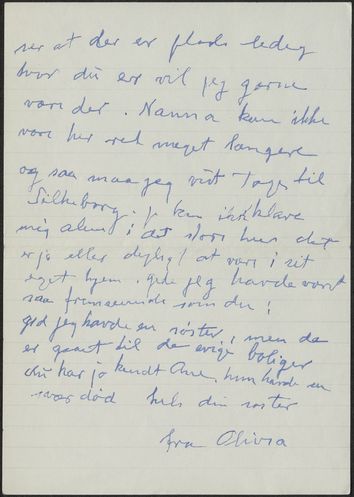 ser at der er plads ledig
hvor du er vil jeg gerne
være der. Nanna kan ikke
være her ret meget længere
og saa maa jeg vist Tage til
Silkeborg. je kan ikke klare
mig alene i det store hus det
er jo eller dejligt at være i sit
eget hjem. gide jeg havde været
saa fremseende som du!
gid jeg havde en søster, men de
er gaaet til de evige boliger
du har jo kendt Ane, hun havde en
svær død hils din søster
fra Olivia